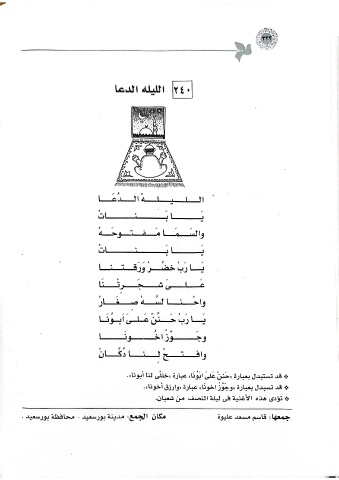 ٢٤٠ الليله الدعا
الليله الدُعَا
يَا بَنَاتْ
والسَّمَا مَفتوحَهْ
يَا بَنَاتْ
يَارَبْ خَضَّرْ وَرَقتنَا
عَلَى شجرِتْنَا
واحْنا لسَّه صغَارْ
يَارَبْ حَنَّنْ عَلَىَ أبُونَا
وجَوّزْ اخُونَا
وافتحْ لِنَا دُكَّانْ
❖ قد تستبدل بعبارة «حَننْ عَلَىَ أبُونَا»، عبارة «خَلَّى لنا أبونا».
❖ قد تستبدل بعبارة «وجَوّزْ اخونا»، عبارة «وارزق أخونا».
❖ تؤدى هذه الأغنية فى ليلة النصف من شعبان.
جمعها: قاسم مسعد عليوة مكان الجمع: مدينة بورسعيد - محافظة بورسعيد.